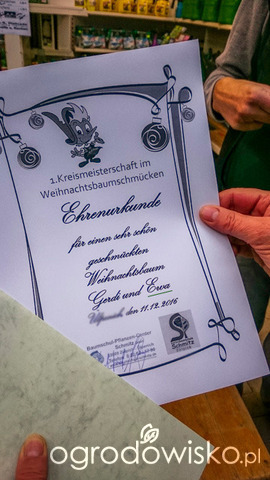 1.Kreismeisterschaft im
Weihnachtsbaumschmücken
Ehrenurkunde
für einen sehr schön
geschmückten
Weihnachtsbaum
Gerdi und Ewa
den 11.12.2016
Baumschul-Pflanzen-Center
Schmitz
Schmitz
ogrodowisko.pl